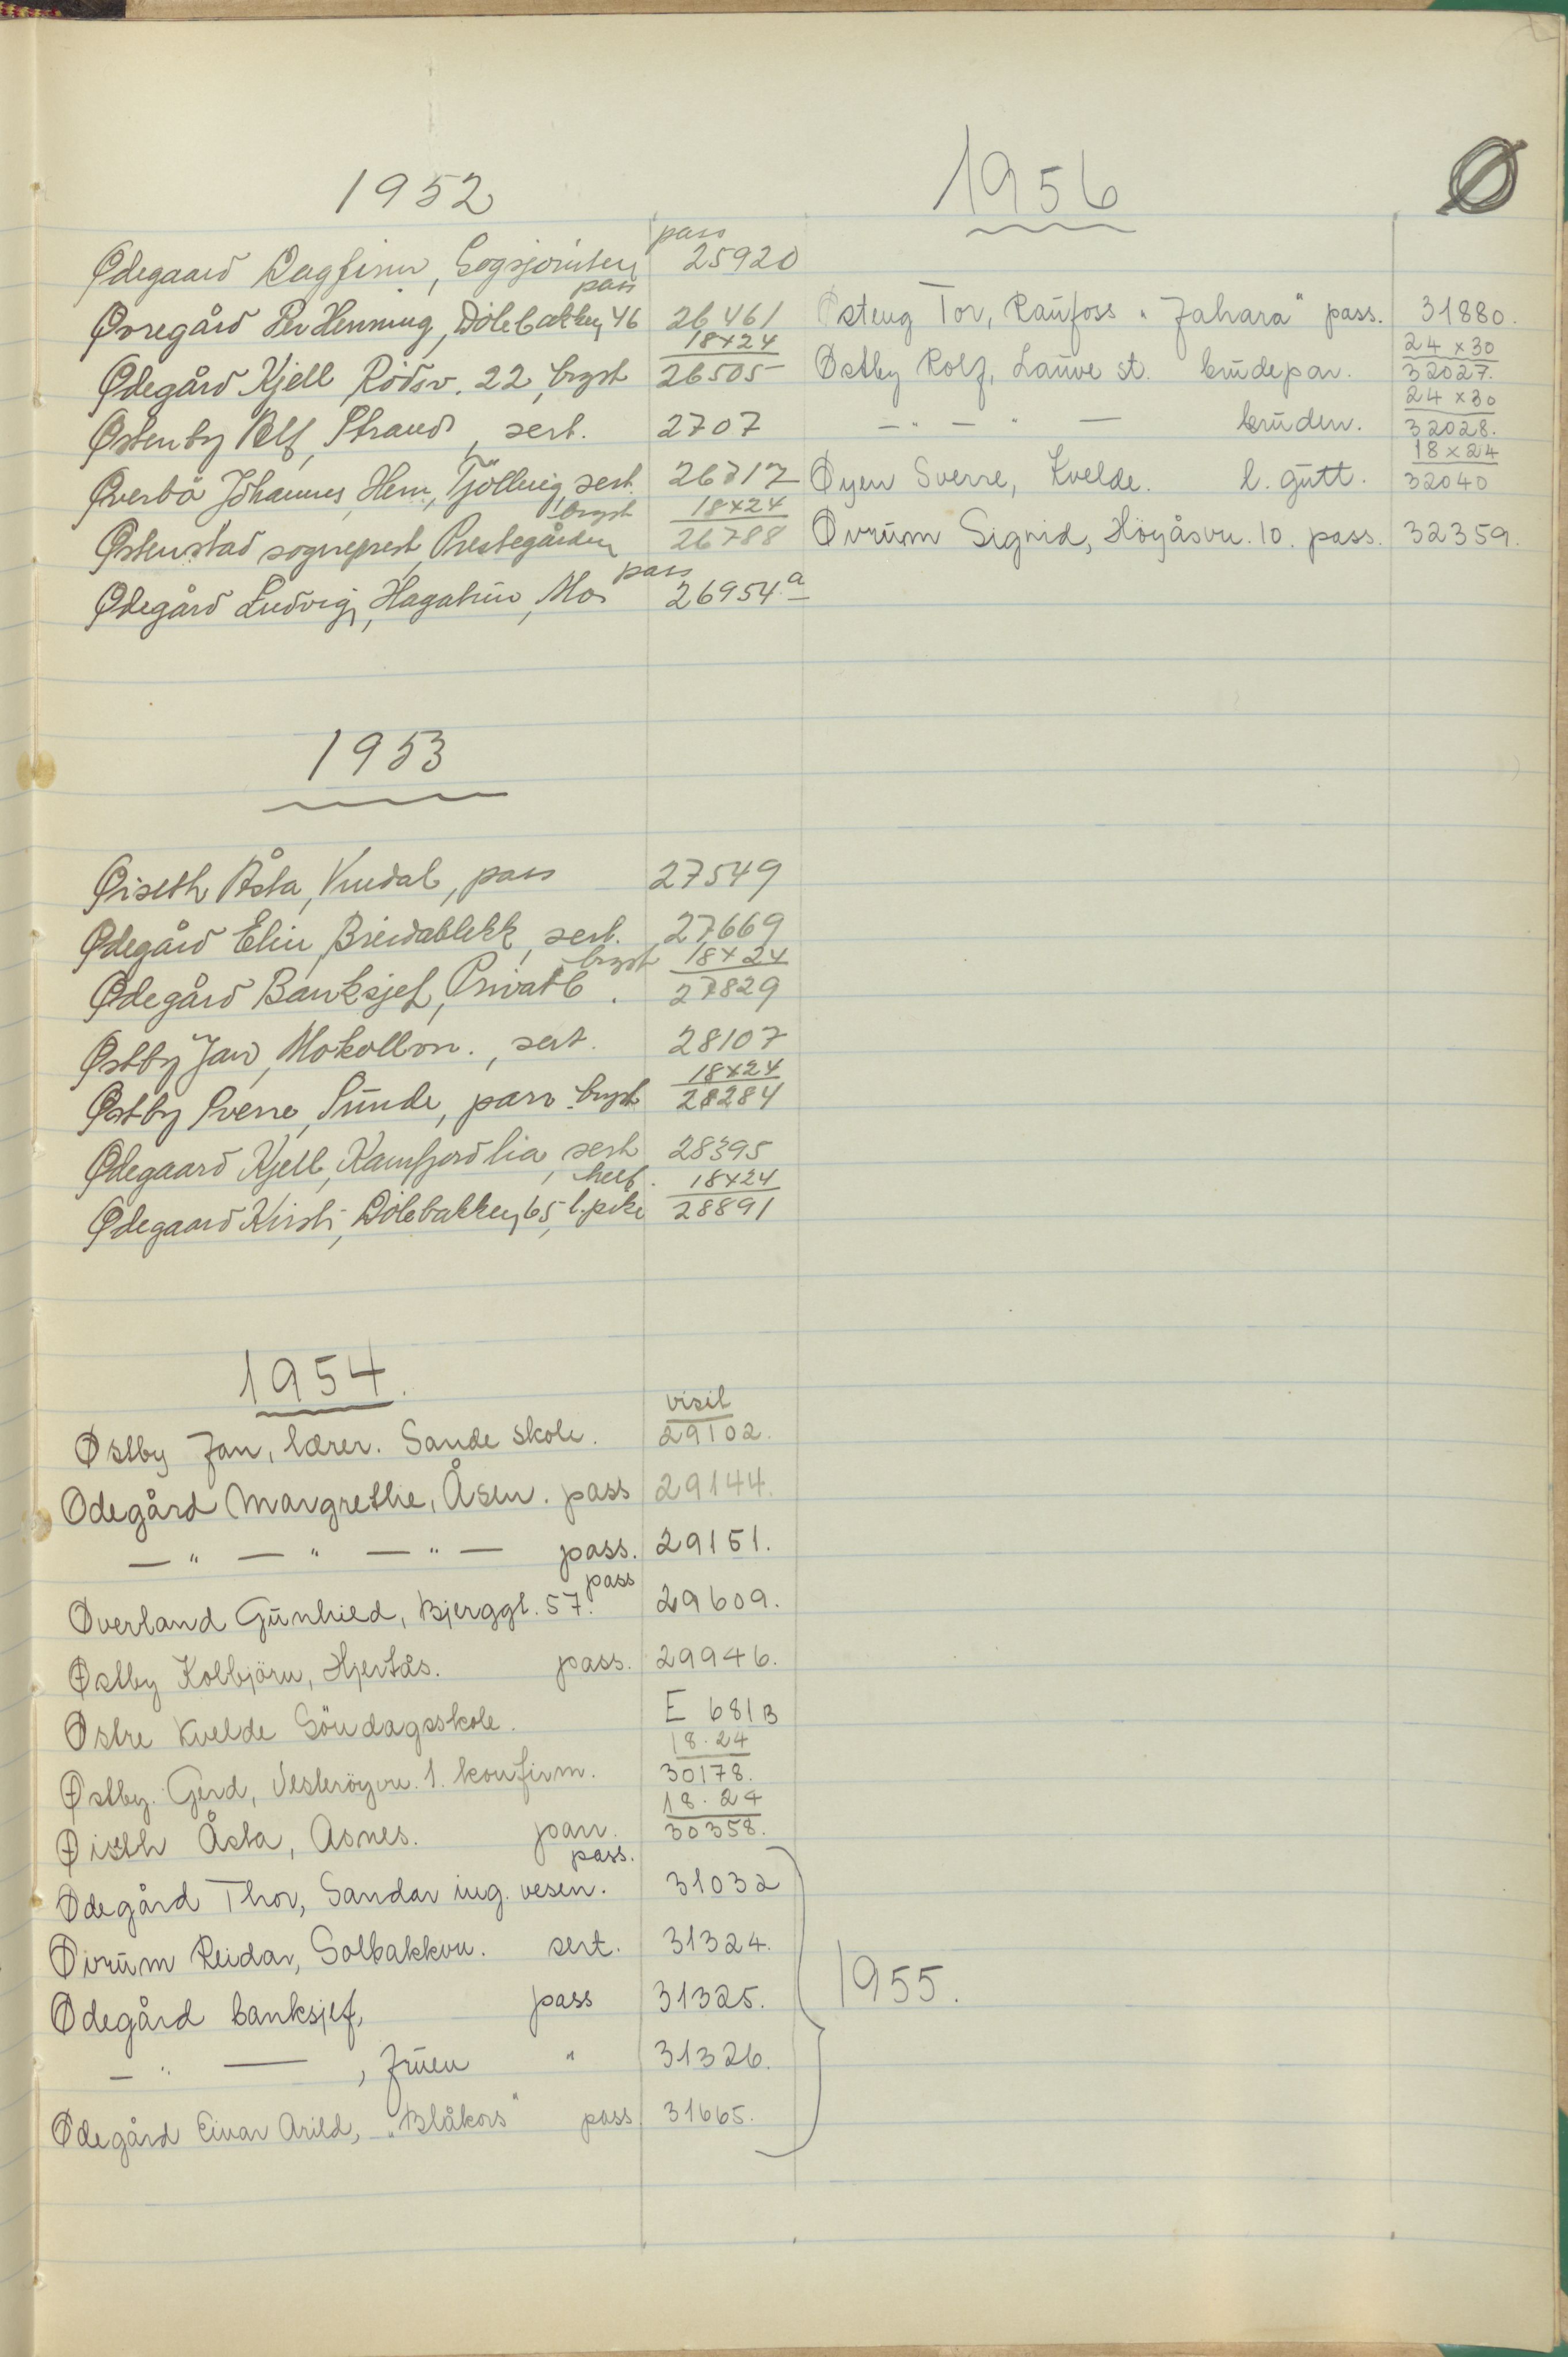 Ø
1952
Ødegaard Dagfinn, Sogsjornten pass 25920
Øvregård Per Henning, Dölebakken 46 pass 26461
Ødegård Kjell Rödsv. 22, bryst 18x24 26505
Østenby Rolf, Strand, sert. 2707
Øverbö Johannes, Hem, Tjölling, sert. 26717
Østenstad sogneprest, Prestegården bryst 18x24 26788
Ødegård Ludvig, Hagatun, Mo pass 26954a
1953
Øiseth Åsta, Kvedal, pass 27549
Ødegård Elin, Breidablikk, sert. 27669
Ødegård Banksjef, Privatb. bryst 18x24 27829
Østby Jan, Mokollvn., sert. 28107
Østby Sverre, Sunde, parv. bryst 18x24 28284
Ødegaard Kjell, Kamfjordlia, sert 28395
Ødegaard Kirsti, Dölebakken 65, l. pike helf. 18x24 28891
1954.
Østby Jan, lærer. Sande skole. visit 29102.
Ødegård Margrethe, Åsen. pass 29144.
— " — " — " — pass. 29151.
Øverland Gunhild, Bjerggt. 57. pass 29609.
Østby Kolbjörn, Hjertås. pass. 29946.
Østre Kvelde Söndagsskole. E 681B
Østby Gerd, Vesteröyvn. 1. konfirm. 18.24 30178.
Øiseth Åsta, Asnes. parv. 18.24 30358.
Ødegård Thor, Sandar ing. vesen. pass. 31032
Øvrum Reidar, Solbakkvn. sert. 31324.
Ødegård banksjef, pass 31325.
— " —, fruen " 31326.
Ødegård Einar Arild, "Blåkors" pass 31665.
1955.
1956
Østeng Tor, Raufoss "Jahara" pass. 31880.
Østby Rolf, Lauve st. brudepar. 24x30 32027.
— " — " — bruden. 24x30 32028.
Øyen Sverre, Kvelde. l. gutt. 18x24 32040
Øvrum Sigrid, Höyåsvn. 10. pass. 32359.